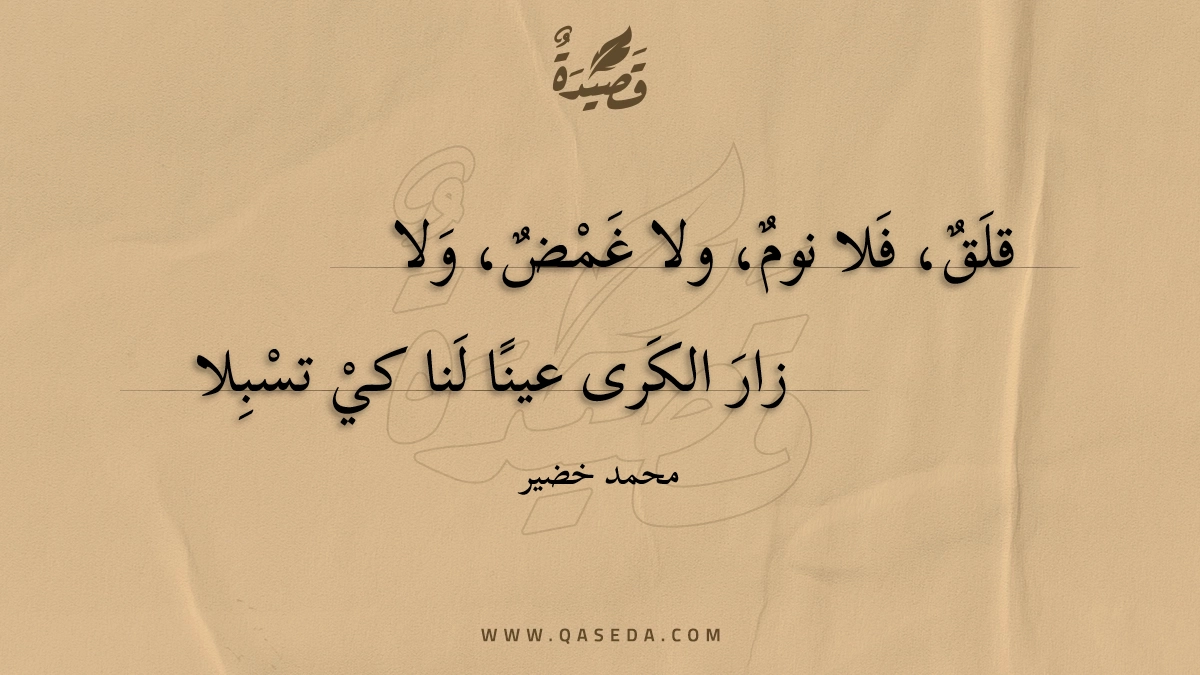 قَصِيْدَةٌ
قلَقٌ، فَلا نومٌ، ولا غَمْضٌ، وَلا
زارَ الكَرى عينًا لَنا كيْ تسْبِلا
محمد خضير
WWW.QASEDA.COM